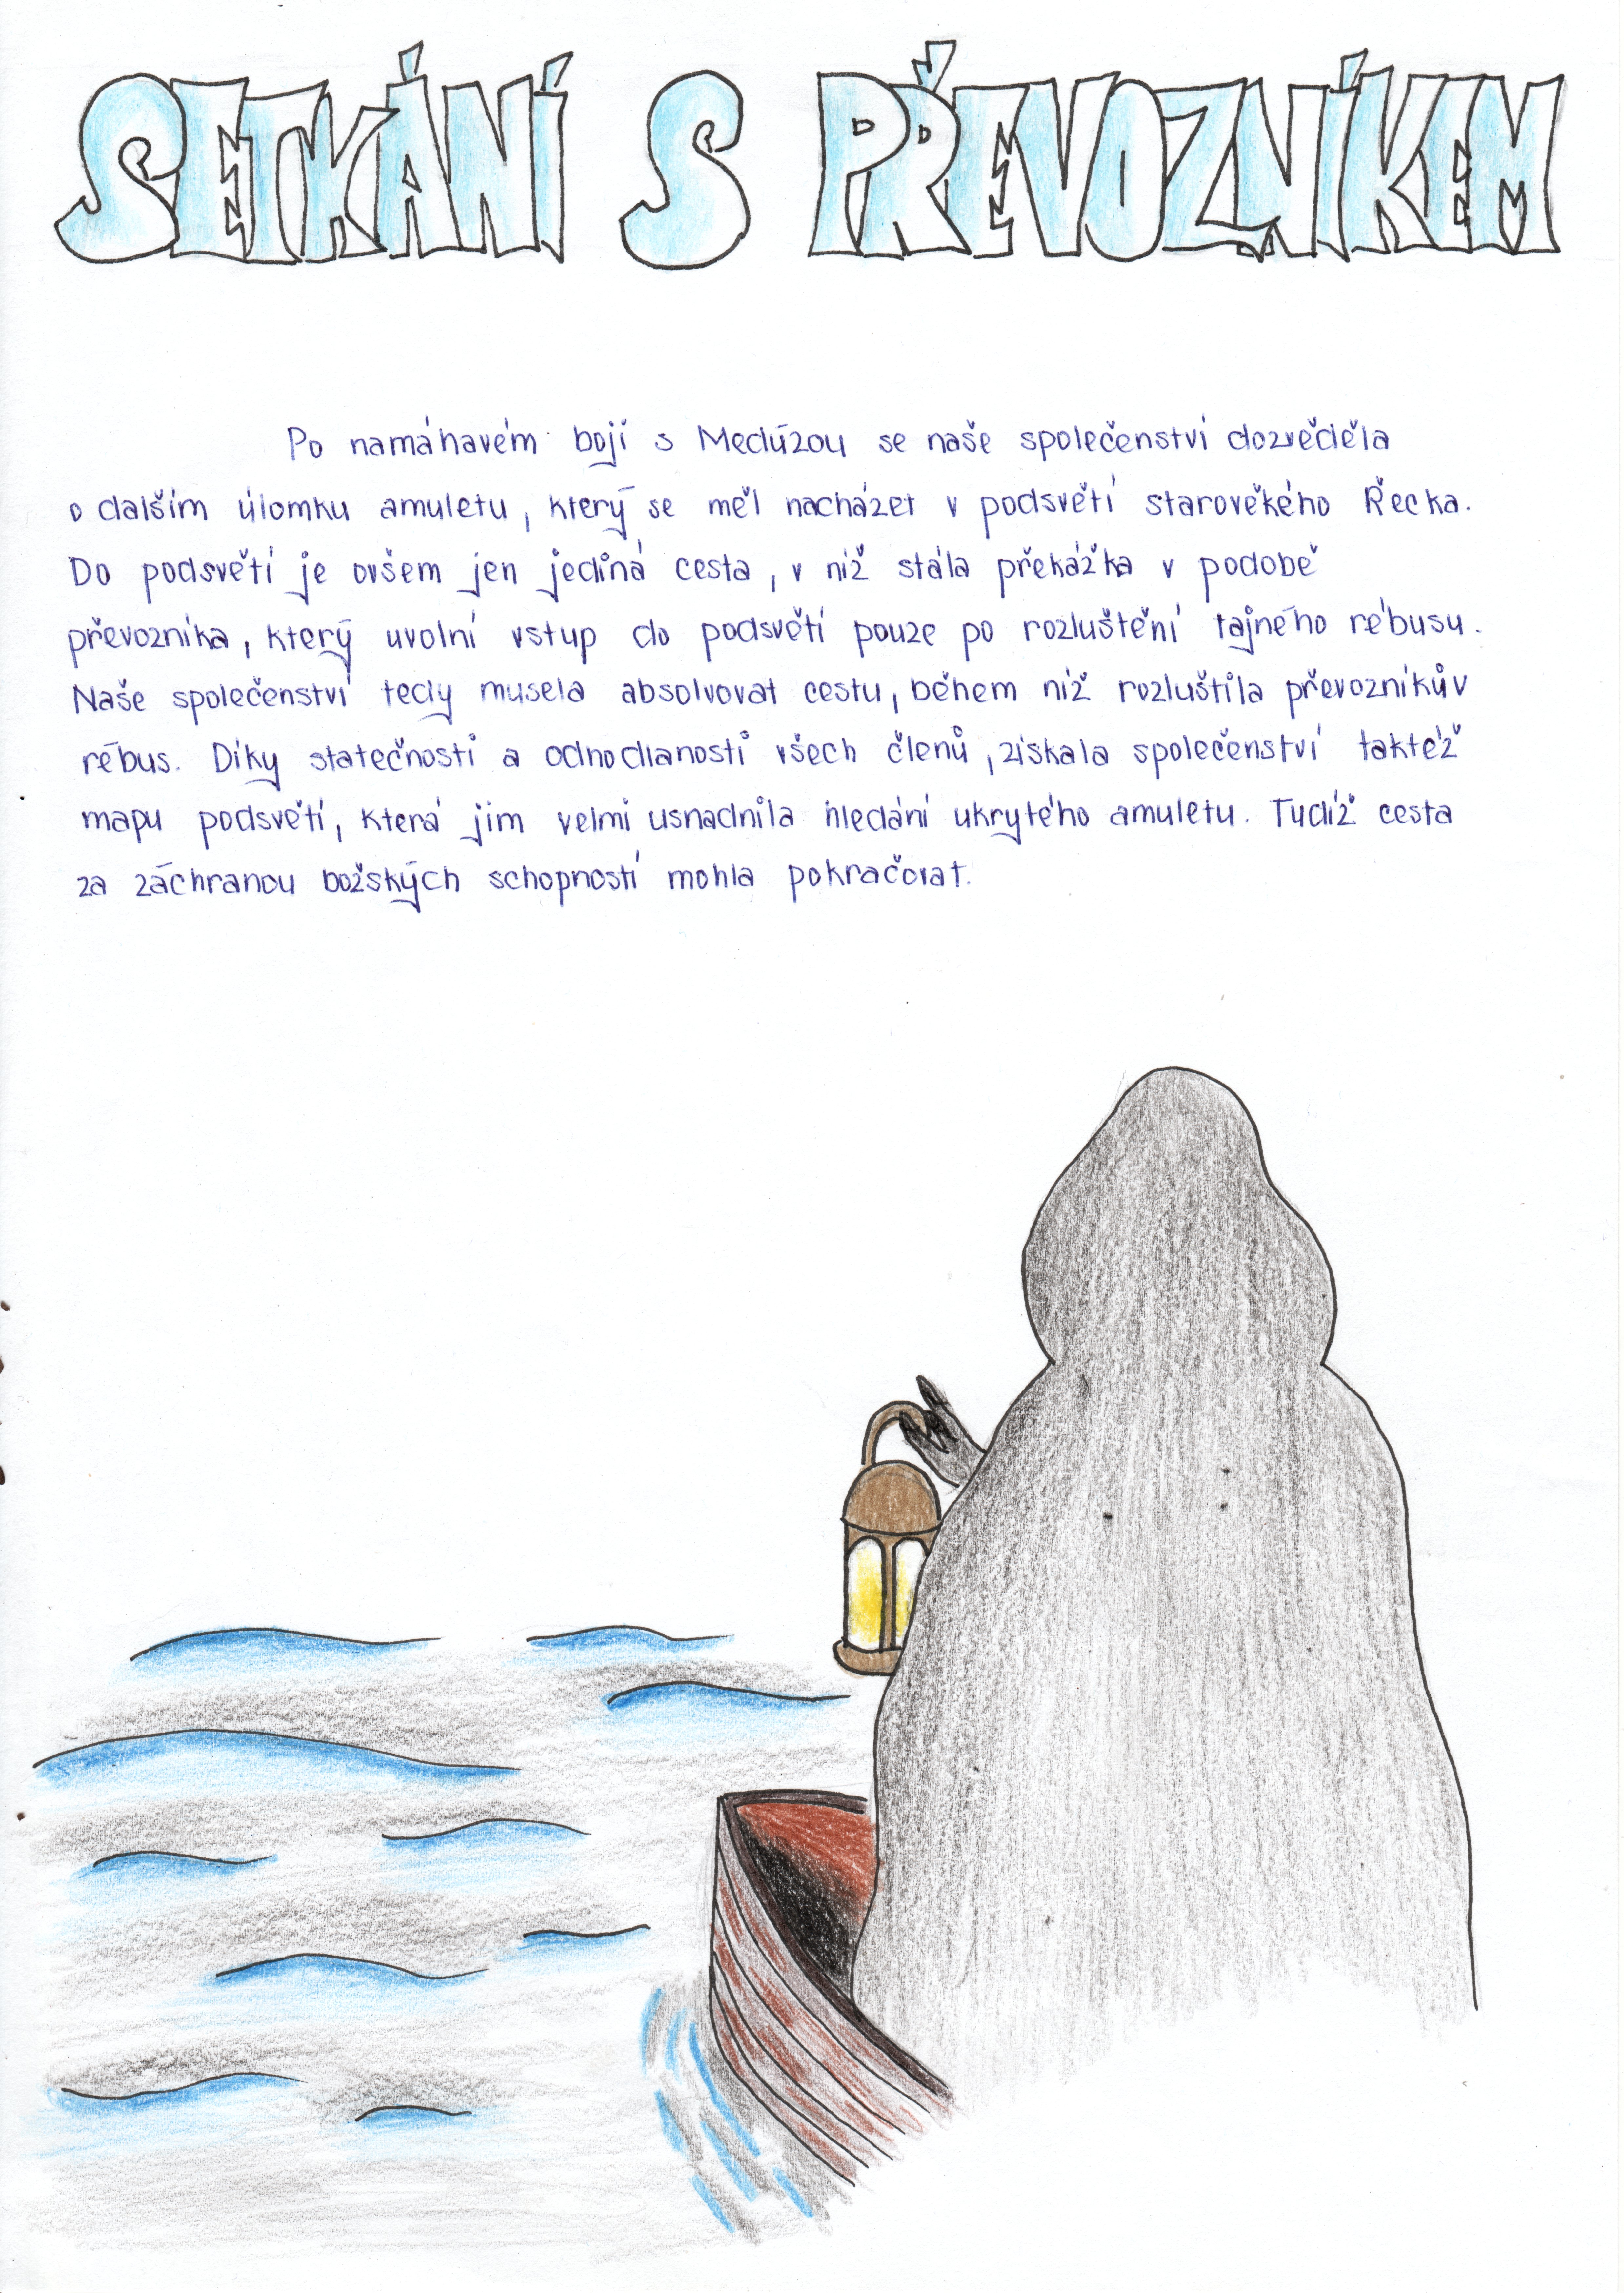 SETKÁNÍ S PŘEVOZNÍKEM
Po namáhavém boji s Medúzou se naše společenství dozvěděla
o dalším úlomku amuletu, který se měl nacházet v podsvětí starověkého Řecka.
Do podsvětí je ovšem jen jediná cesta, v níž stála překážka v podobě
převozníka, který uvolní vstup do podsvětí pouze po rozluštění tajného rébusu.
Naše společenství tedy musela absolvovat cestu, během níž rozluštila převozníkův
rébus. Díky statečnosti a odhodlanosti všech členů, získala společenství taktéž
mapu podsvětí, která jim velmi usnadnila hledání ukrytého amuletu. Tudíž cesta
za záchranou božských schopností mohla pokračovat.